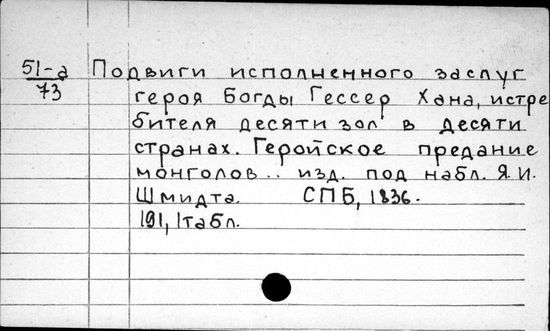 51-а Подвиги исполненного заслуг
73 героя Богды Гессер Хана, истре
бителя десяти зол в десяти
странах. Геройское предание
монголов .. изд. под набл. Я.И.
Шмидта. СПБ, 1836.
191, 1табл.